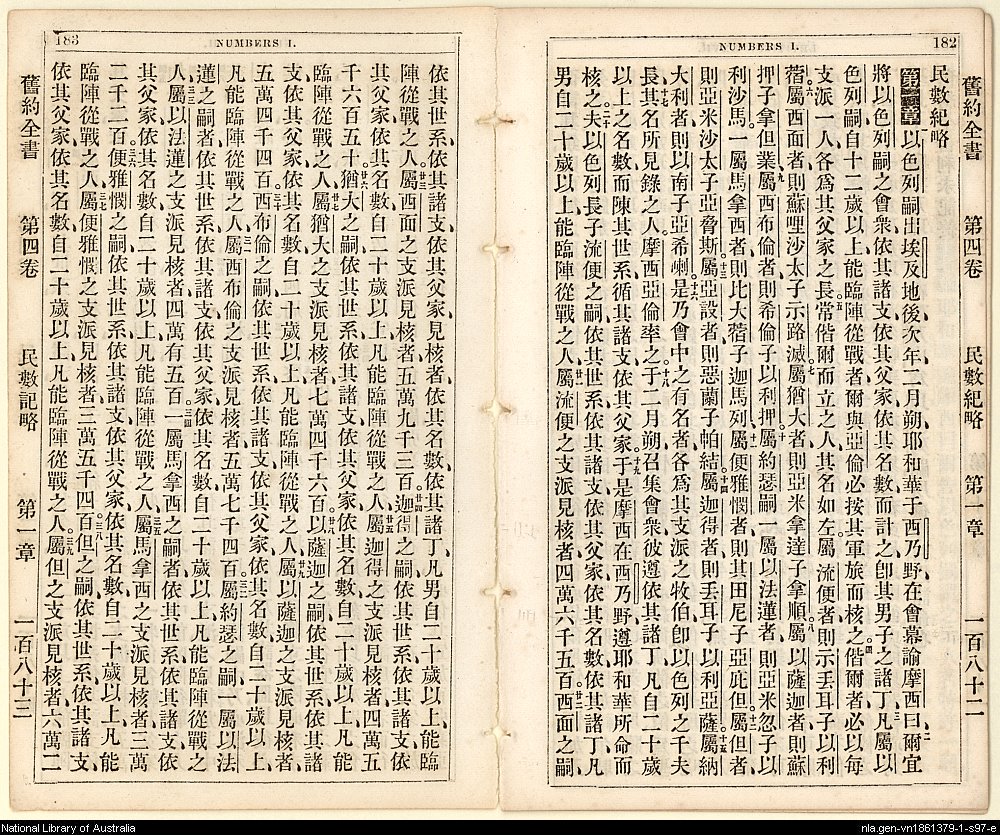 182
NUMBERS I.
舊約全書 第四卷 民數紀略 第一章 一百八十二
民數紀略
第一章以色列嗣出埃及地後、次年二月朔、耶和華于西乃野在會幕諭摩西曰、爾宜
將以色列嗣之會衆、依其諸支、依其父家、依其名數而計之、卽其男子之諸丁、凡屬以
色列嗣、自十二歲以上、能臨陣從戰者、爾與亞倫必按其軍旅而核之、偕爾者必以每
支派一人、各爲其父家之長、常偕爾而立之人、其名如左、屬流便者、則示丟耳子以利
蓿、屬西面者、則蘇哩沙太子示路滅、屬猶大者、則亞米拿達子拿順、屬以薩迦者、則蘇
押子拿但業、屬西布倫者、則希倫子以利押、屬約瑟嗣一屬以法蓮者、則亞米忽子以
利沙馬、一屬馬拿西者、則比大蓿子迦馬列、屬便雅憫者、則其田尼子亞庇但、屬但者、
則亞米沙太子亞脅斯、屬亞設者、則惡蘭子帕結、屬迦得者、則丟耳子以利亞薩、屬納
大利者、則以南子亞希喇、是乃會中之有名者、各爲其支派之牧伯、卽以色列之千夫
長、其名所見錄之人、摩西亞倫率之、于二月朔召集會衆、彼遵依其諸丁凡自二十歲
以上之名數、而陳其世系、循其諸支、依其父家、于是摩西在西乃野遵耶和華所命而
核之、夫以色列長子流便之嗣、依其世系、依其諸支、依其父家、依其名數、依其諸丁、凡
男自二十歲以上、能臨陣從戰之人、屬流便之支派見核者、四萬六千五百、西面之嗣、
183
NUMBERS I.
依其世系、依其諸支、依其父家、見核者、依其名數、依其諸丁、凡男自二十歲以上、能臨
陣從戰之人、屬西面之支派見核者、五萬九千三百、迦得之嗣、依其世系、依其諸支、依
其父家、依其名數、自二十歲以上、凡能臨陣從戰之人、屬迦得之支派見核者、四萬五
千六百五十、猶大之嗣、依其世系、依其諸支、依其父家、依其名數、自二十歲以上、凡能
臨陣從戰之人、屬猶大之支派見核者、七萬四千六百、以薩迦之嗣、依其世系、依其諸
支、依其父家、依其名數、自二十歲以上、凡能臨陣從戰之人、屬以薩迦之支派見核者、
五萬四千四百、西布倫之嗣、依其世系、依其諸支、依其父家、依其名數、自二十歲以上、
凡能臨陣從戰之人、屬西布倫之支派見核者、五萬七千四百、屬約瑟之嗣、一屬以法
蓮之嗣者、依其世系、依其諸支、依其父家、依其名數、自二十歲以上、凡能臨陣從戰之
人、屬以法蓮之支派見核者、四萬有五百、一屬馬拿西之嗣者、依其世系、依其諸支、依
其父家、依其名數、自二十歲以上、凡能臨陣從戰之人、屬馬拿西之支派見核者、三萬
二千二百、便雅憫之嗣、依其世系、依其諸支、依其父家、依其名數、自二十歲以上、凡能
臨陣從戰之人、屬便雅憫之支派見核者、三萬五千四百、但之嗣、依其世系、依其諸支、
依其父家、依其名數、自二十歲以上、凡能臨陣從戰之人、屬但之支派見核者、六萬二
舊約全書 第四卷 民數記略 第一章 一百八十三
National Library of Australia
nla.gen-vn1861379-1-s97-e